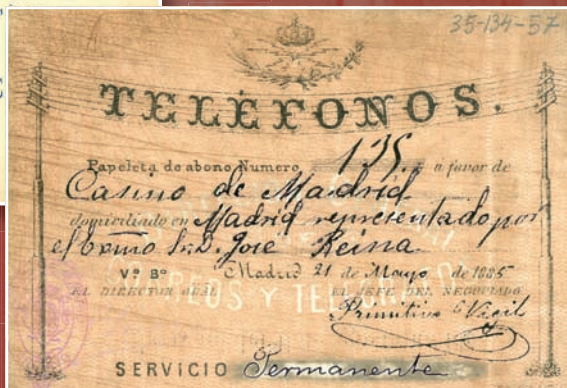 35-134-57
TELÉFONOS.
Papeleta de abono Numero 135. a favor de
Casino de Madrid
domiciliado en Madrid representado por
el Excmo Sr. D. José Reina
Vº Bº Madrid 21 de Mayo de 1885
EL DIRECTOR GRAL EL JEFE DEL NEGOCIADO
CORREOS Y TELÉGRAFOS
Primitivo Vigil
SERVICIO Permanente